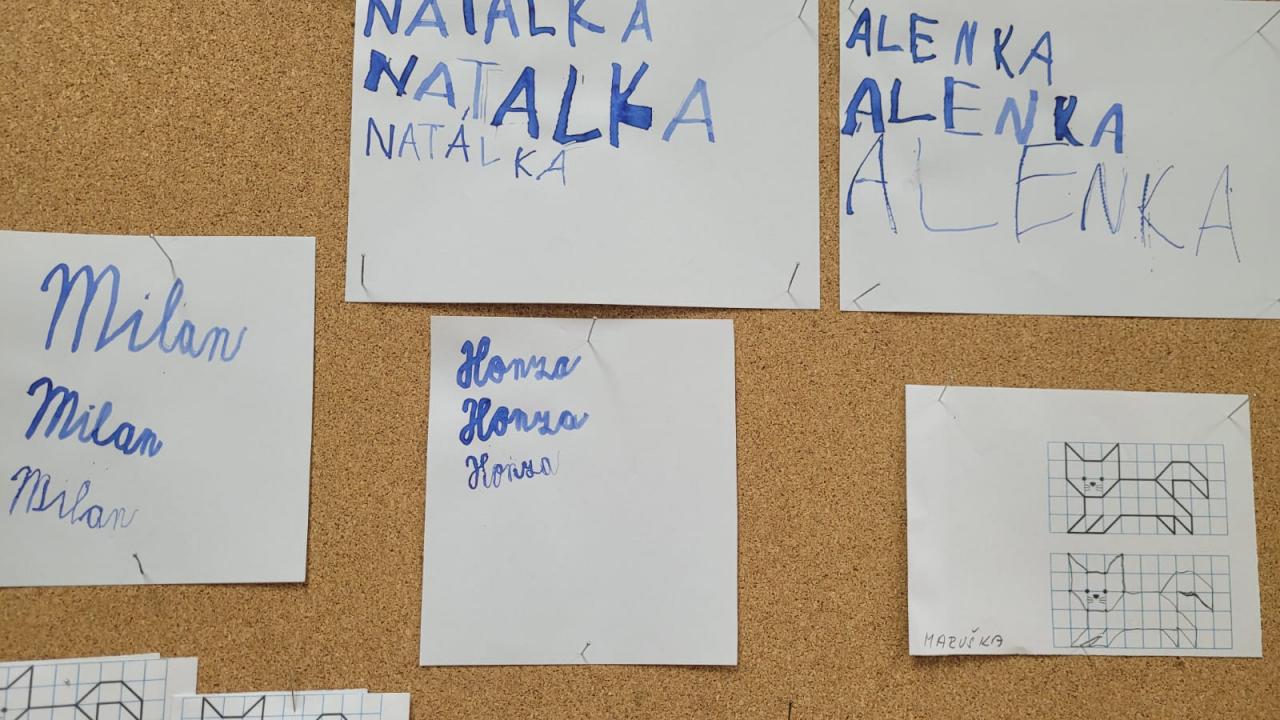 NATALKA
NATALKA
NATÁLKA
ALENKA
ALENKA
ALENKA
Milan
Milan
Milan
Honza
Honza
Honza
MARUŠKA